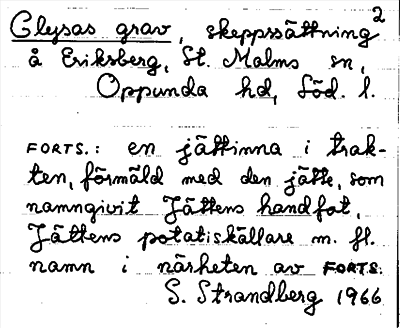 2
Glysas grav, skeppssättning
å Eriksberg, St. Malms sn,
Oppunda hd, Söd. l.
FORTS.: en jättinna i trak-
ten, förmäld med den jätte, som
namngivit Jättens handfat,
Jättens potatiskällare m. fl.
namn i närheten av FORTS.
S. Strandberg 1966